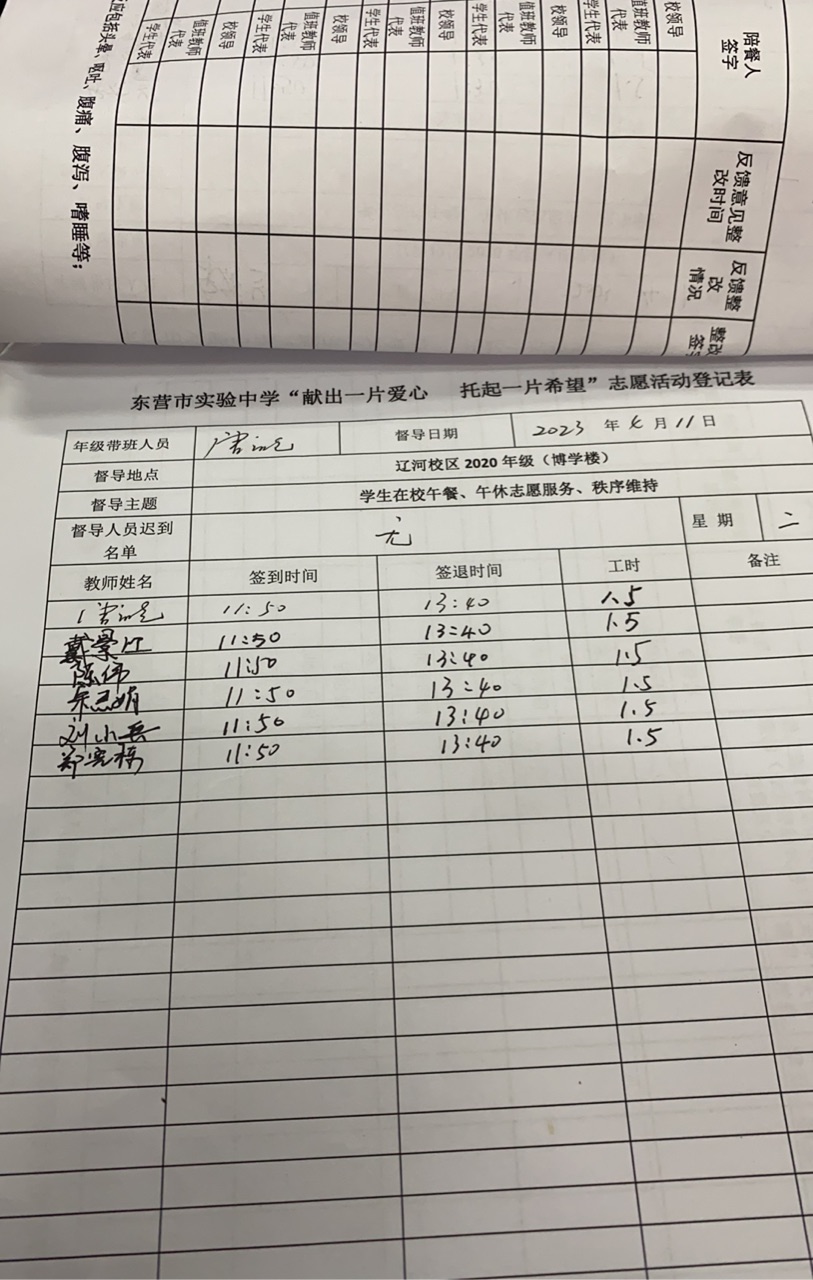 陪餐人签字
反馈意见整改时间
反馈整改情况
校领导
值班教师代表
学生代表
校领导
值班教师代表
学生代表
校领导
值班教师代表
学生代表
校领导
值班教师代表
学生代表
校领导
值班教师代表
学生代表
呕吐、腹痛、腹泻、嗜睡等;
东营市实验中学“献出一片爱心 托起一片希望”志愿活动登记表
年级带班人员 督导日期 2023 年 月 11 日
督导地点 辽河校区 2020 年级（博学楼）
督导主题 学生在校午餐、午休志愿服务、秩序维持
督导人员迟到名单 无 星 期 二
教师姓名 签到时间 签退时间 工时 备注
11:50 13:40 1.5
戴景江 11:50 13:40 1.5
陈伟 11:50 13:40 1.5
11:50 13:40 1.5
刘小兵 11:50 13:40 1.5
郑宪福 11:50 13:40 1.5